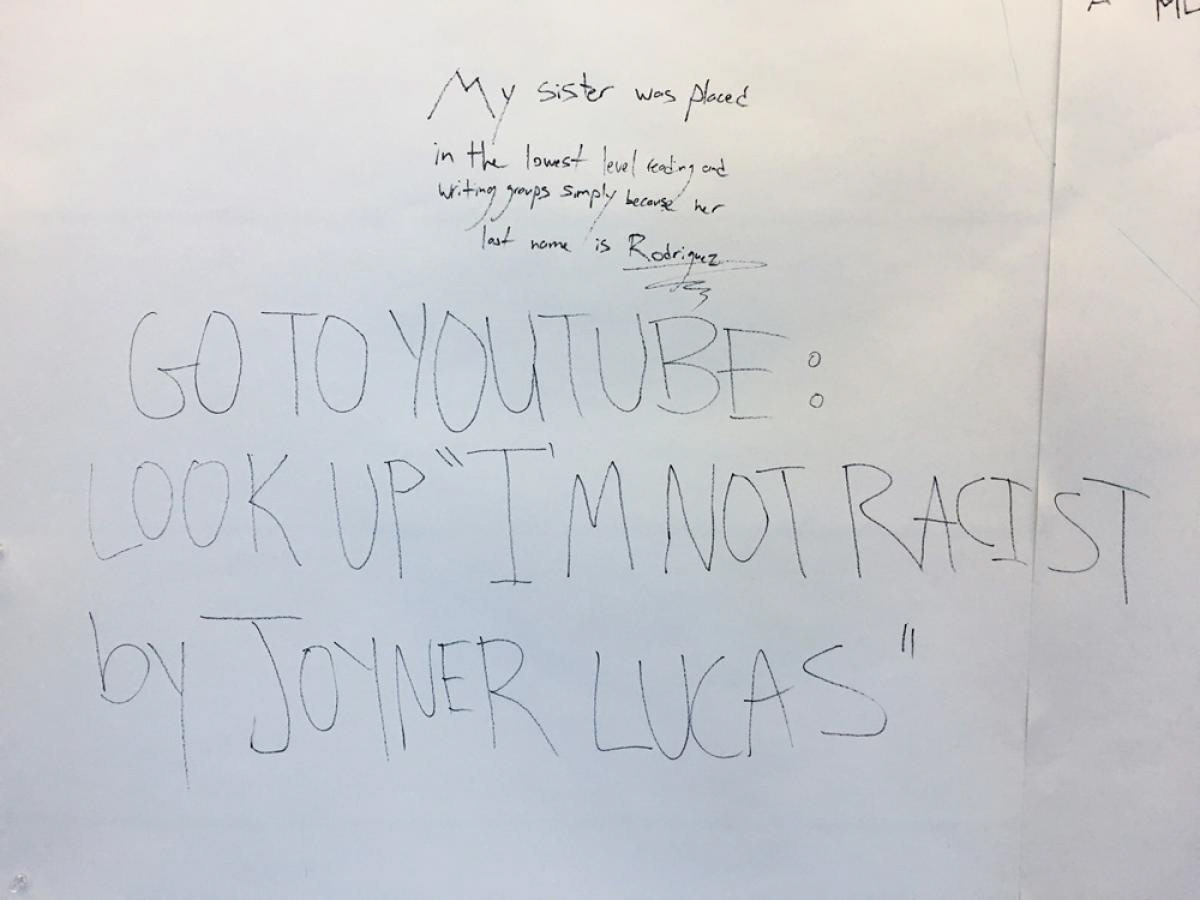 My sister was placed
in the lowest level reading and
writing groups simply because her
last name is Rodriguez
GO TO YOUTUBE:
LOOK UP "I'M NOT RACIST
by JOYNER LUCAS"